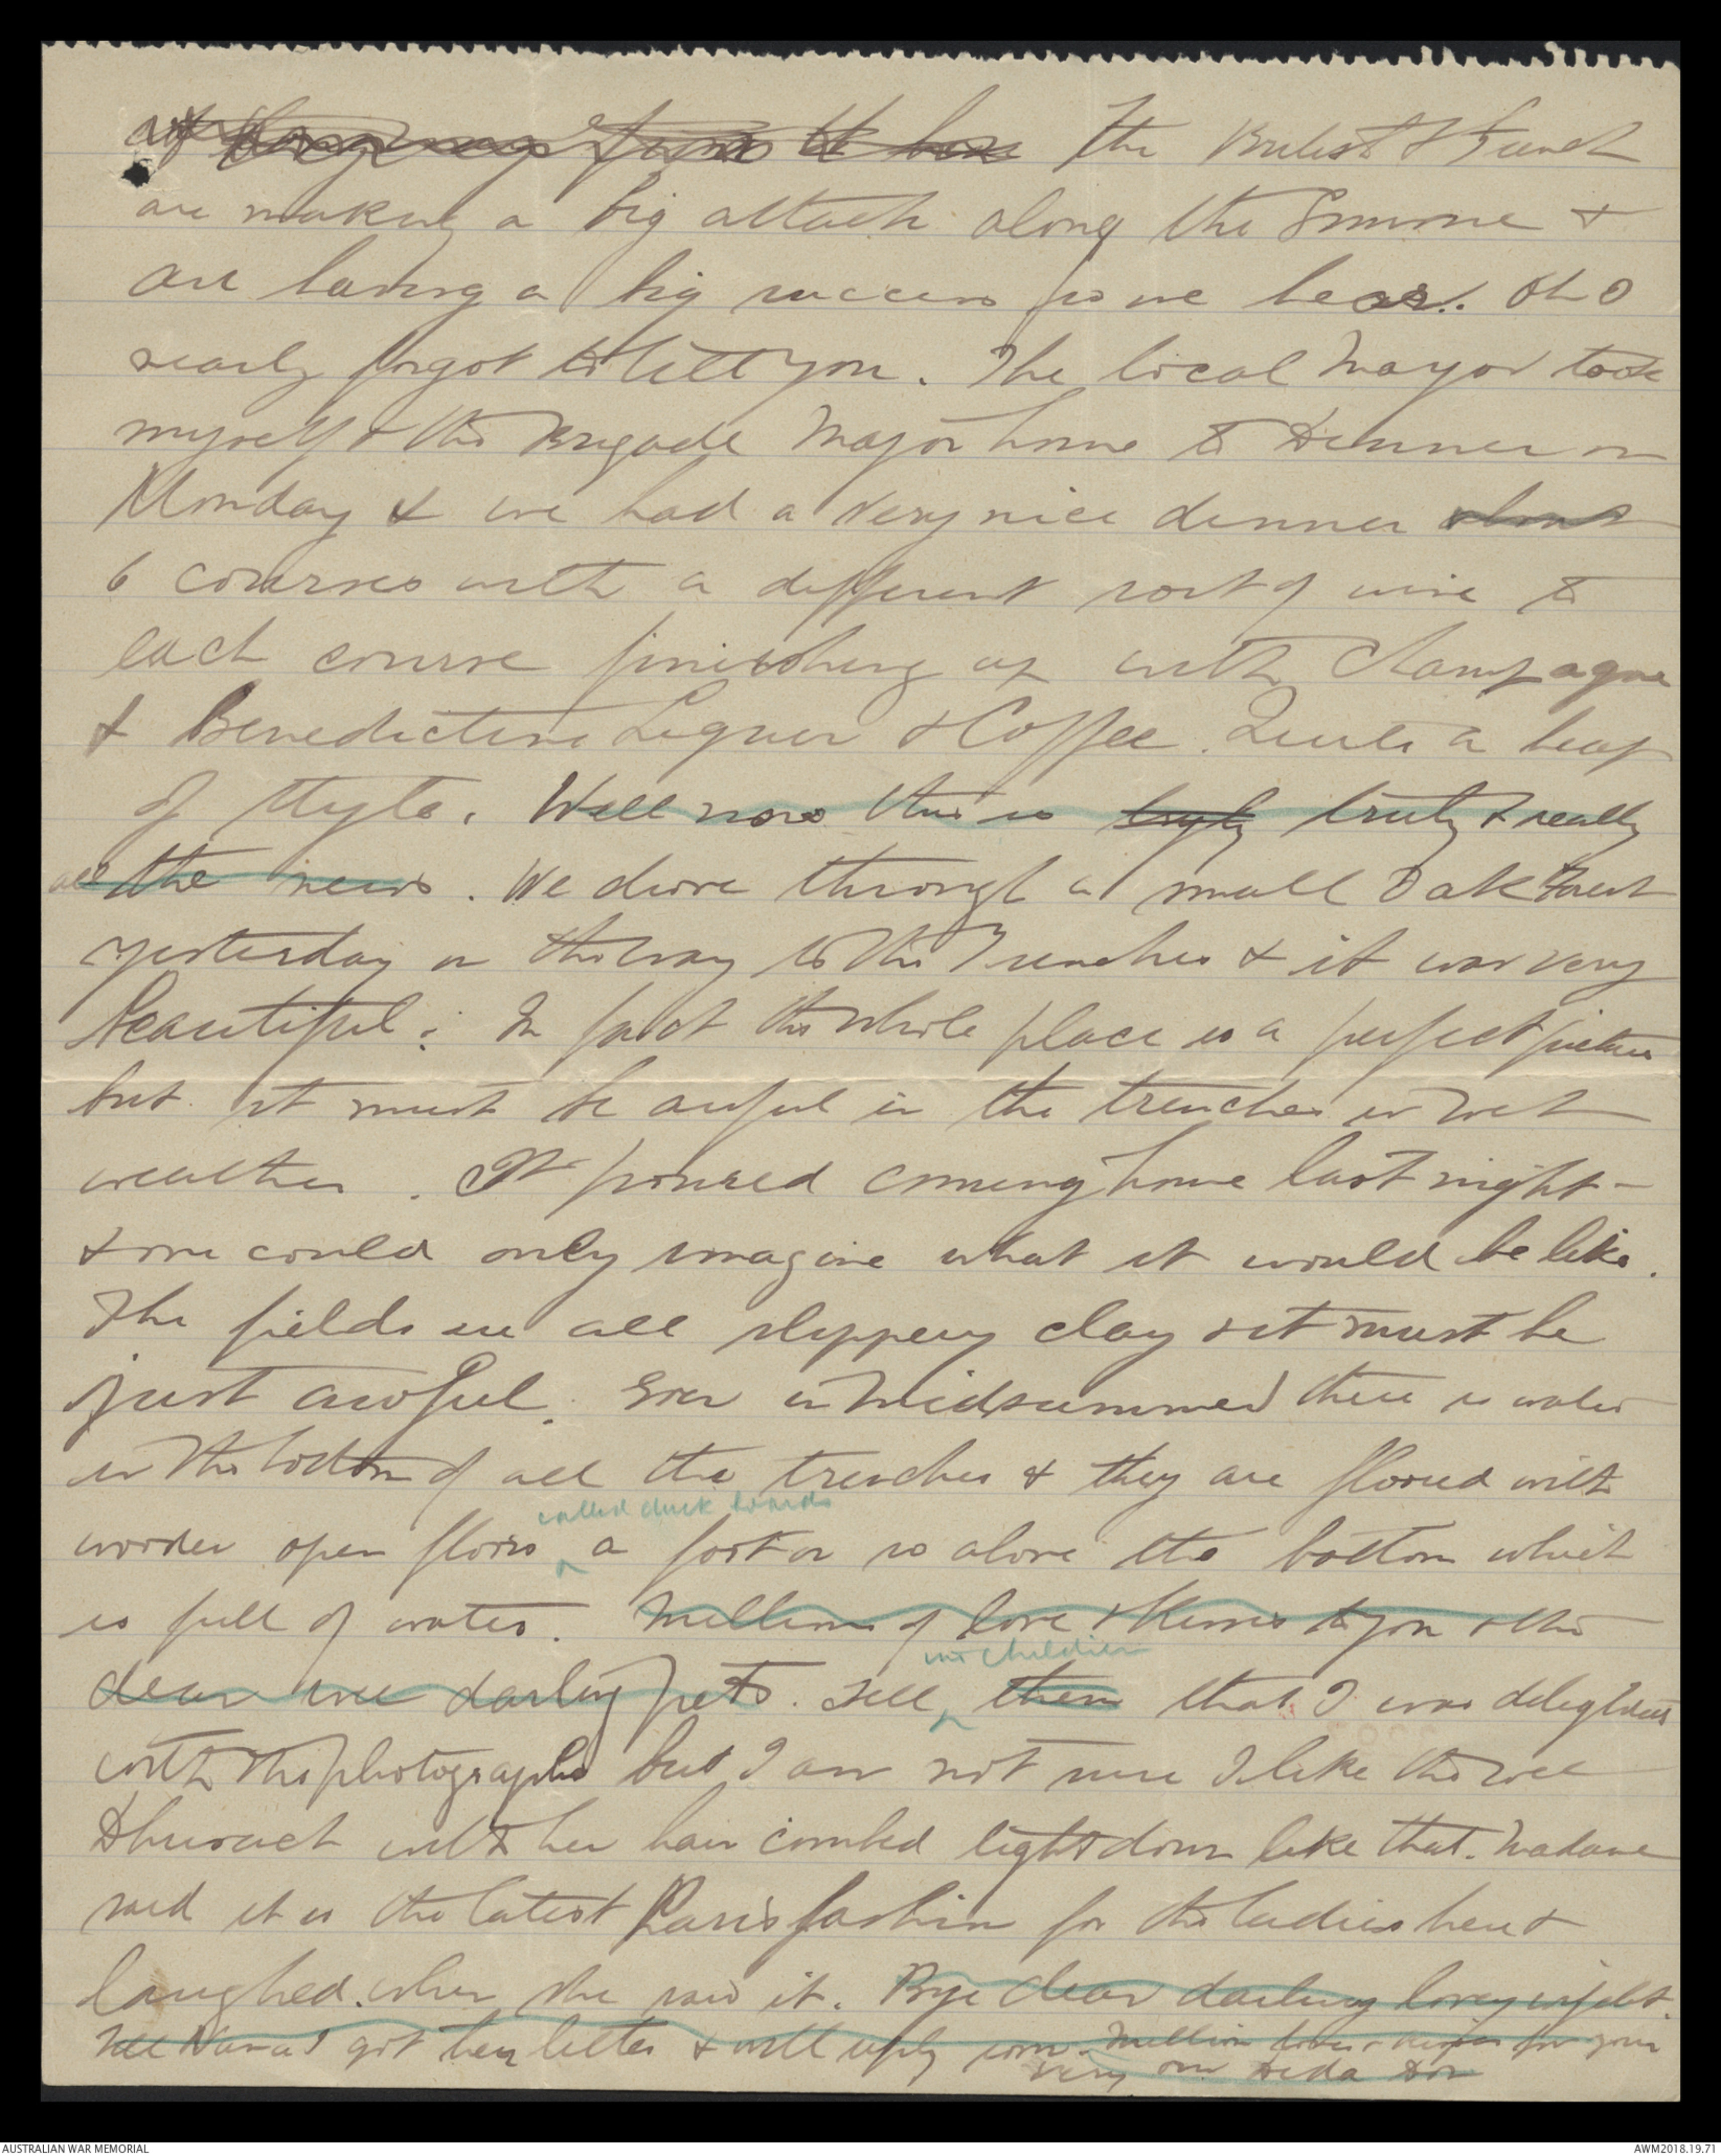 The British & French
are making a big attack along the Somme &
are having a big success so we hear. Oh I
nearly forgot to tell you. The local Mayor took
myself & the Brigade Major home to Dinner on
Monday & we had a very nice dinner
6 courses with a different sort of wine to
each course finishing up with Champagne
& Benedictine Liquer & Coffee. Quite a heap
of style. Well now this is truly truly & really
all the news. We drove through a small Oak Forest
yesterday on the way to the Trenches & it was very
beautiful. In fact the whole place is a perfect picture
but it must be awful in the trenches in wet
weather. It poured coming home last night -
& one could only imagine what it would be like.
The fields are all slippery clay & it must be
just awful. Even in Midsummer there is water
in the bottom of all the trenches & they are floored with
called duck boards
wooden open floors a foot or so above the bottom which
is full of water. Millions of love & kisses to you & the
children
dear wee darling pets. Tell them that I was delighted
with the photographs but I am not sure I like the wee
with her hair combed tight down like that. Madame
said it is the latest Paris fashion for the ladies here &
laughed when she saw it. Bye dear darling lovey
Tell Nana I got her letter & will reply soon. Million loves & kisses from your
very own Dida Don
AUSTRALIAN WAR MEMORIAL
AWM2018.19.71